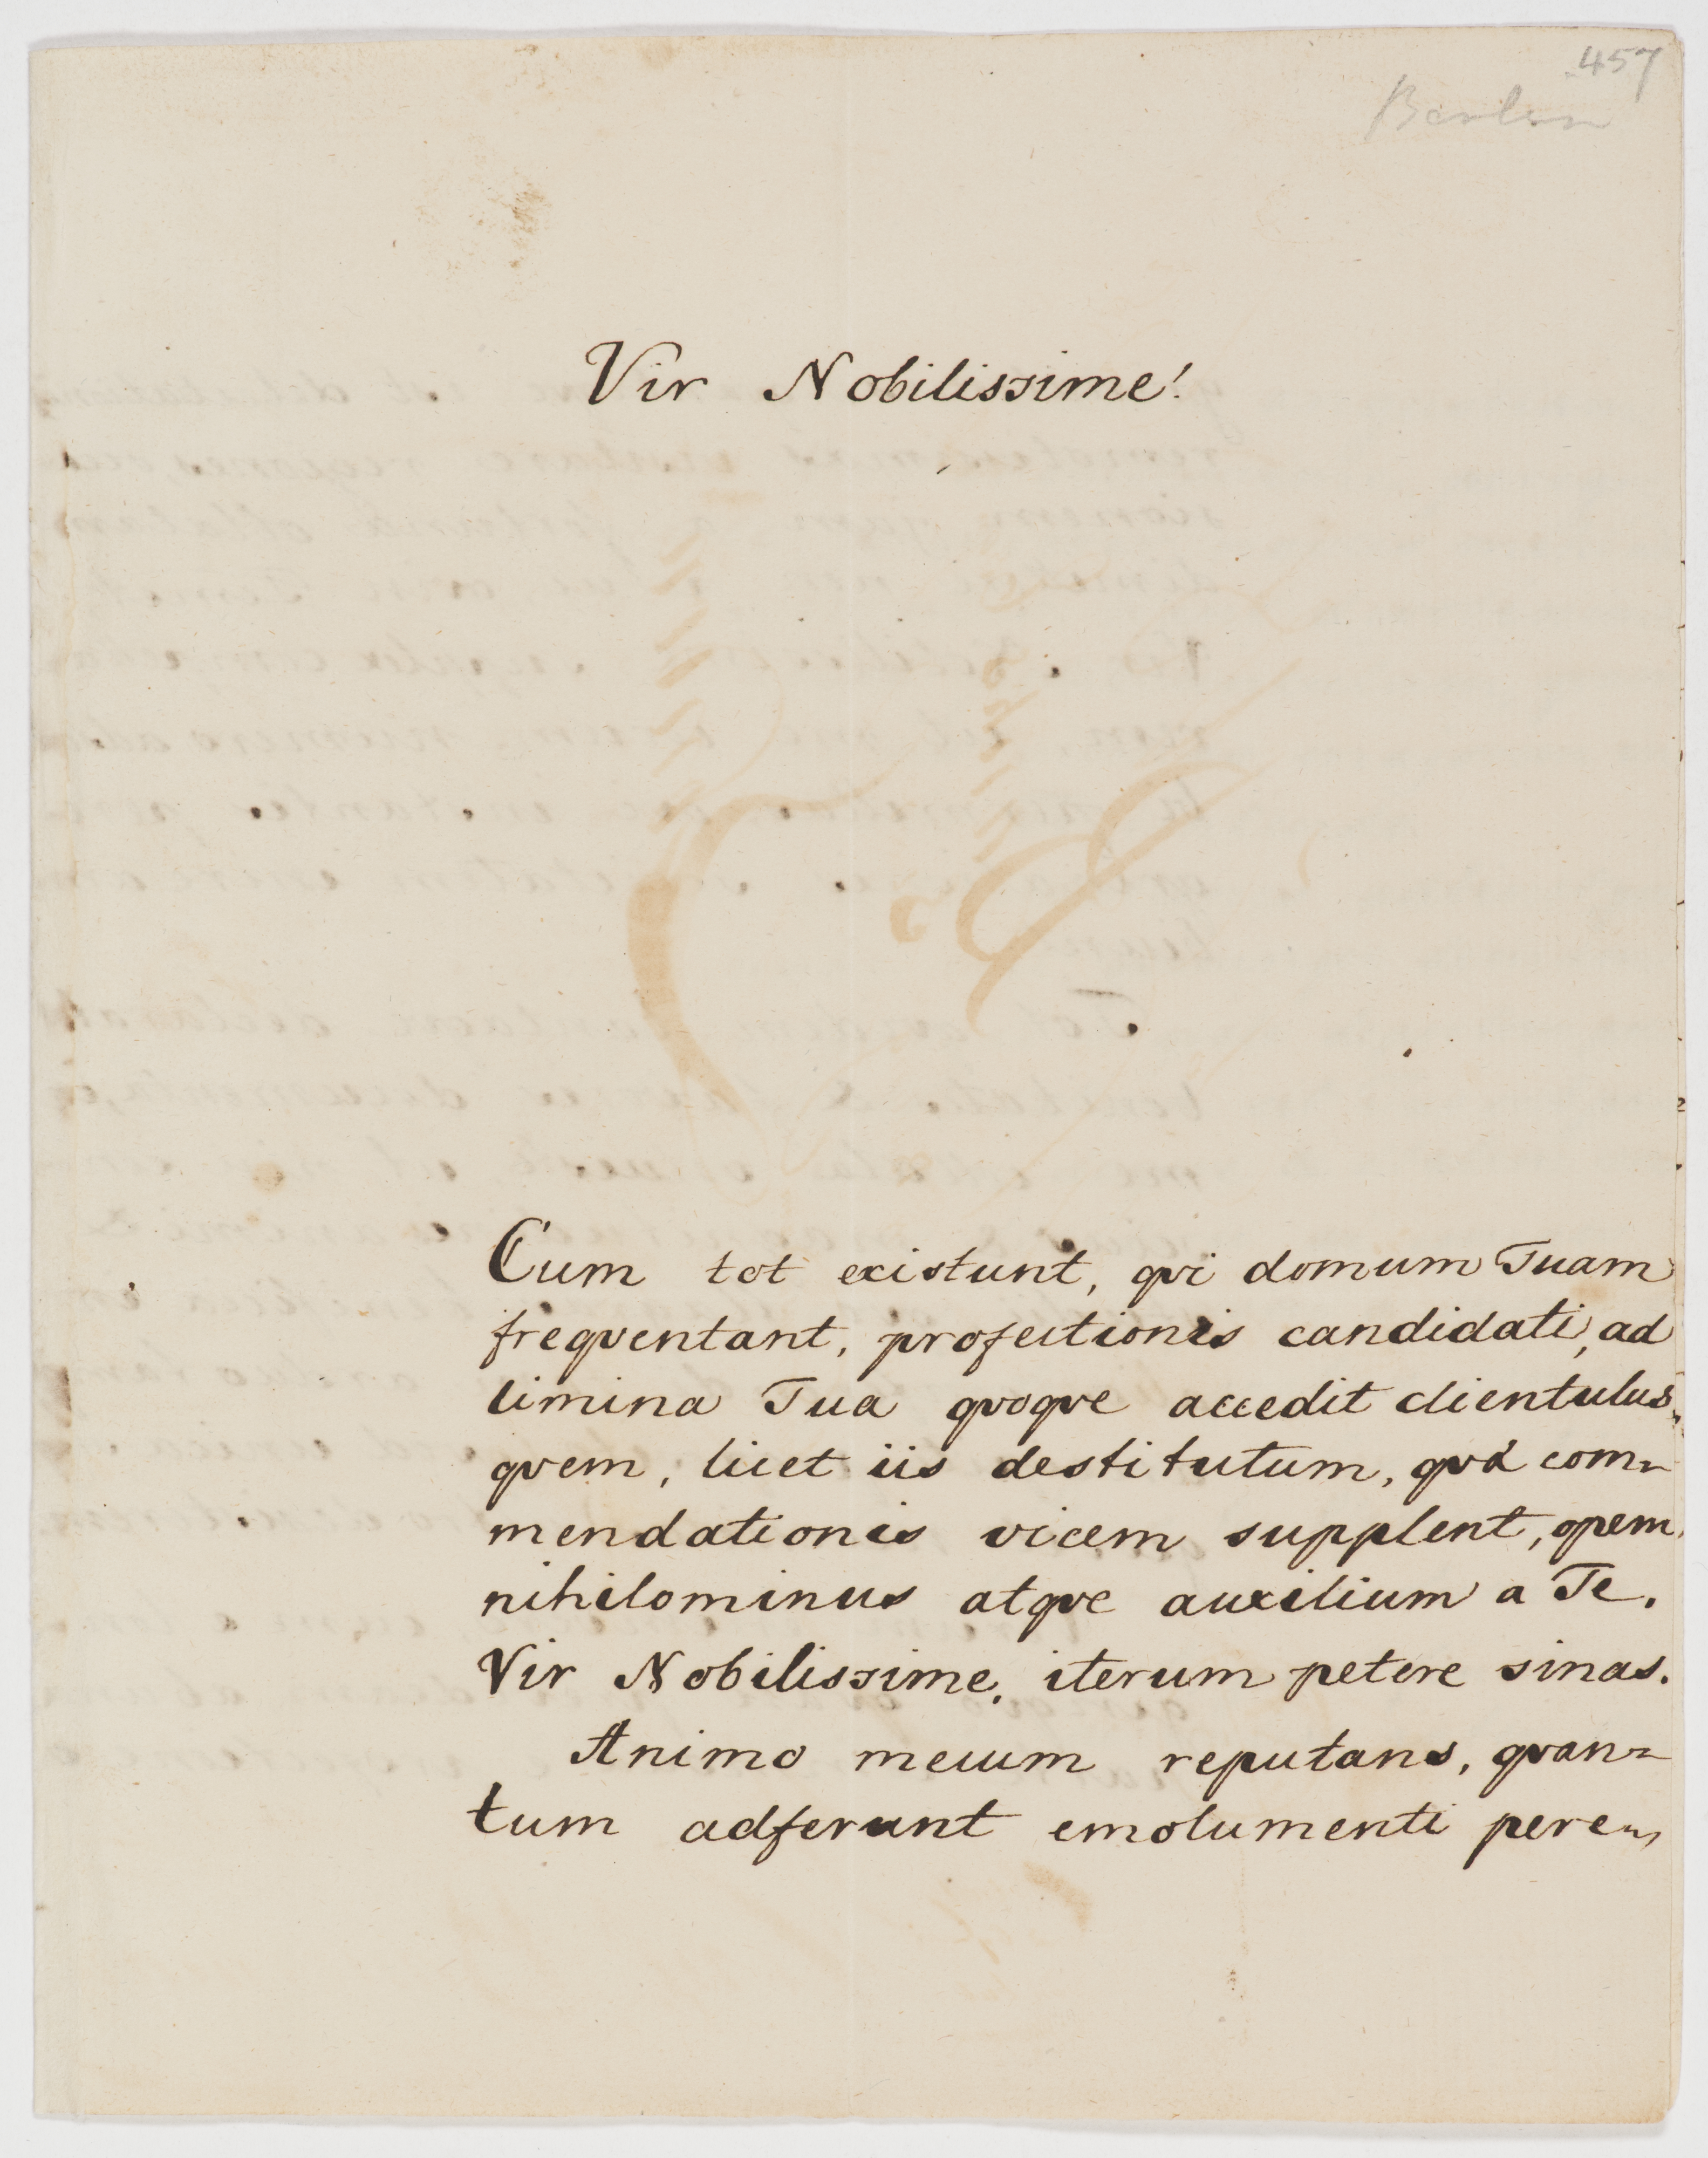 457
Vir Nobilissime!
Cum tot existunt, qvi domum Tuam
freqventant, profectionis candidati, ad
limina Tua qvoqve accedit clientulus,
qvem, licet iis destitutum, qvæ com=
mendationis vicem supplent, opem
nihilominus atqve auxilium a Te,
Vir Nobilissime, iterum petere sinas.
Animo mecum reputans, qvan=
tum adferunt emolumenti pere=